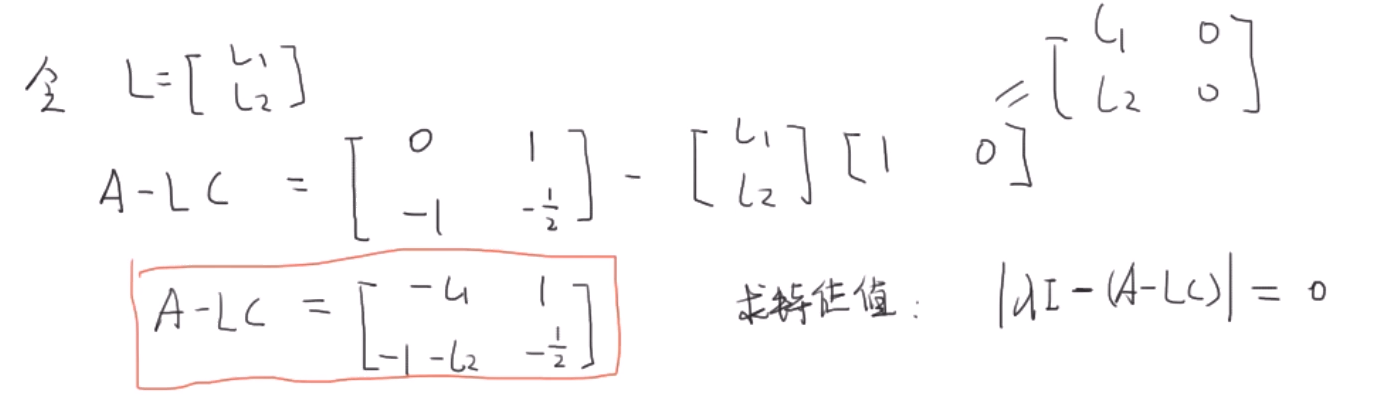 令 L = [ L₁ ; L₂ ]
A-LC = [ 0 1 ; -1 -1/2 ] - [ L₁ ; L₂ ] [ 1 0 ] = [ L₁ 0 ; L₂ 0 ]
A-LC = [ -L₁ 1 ; -1-L₂ -1/2 ] 求特征值: |λI-(A-LC)| = 0